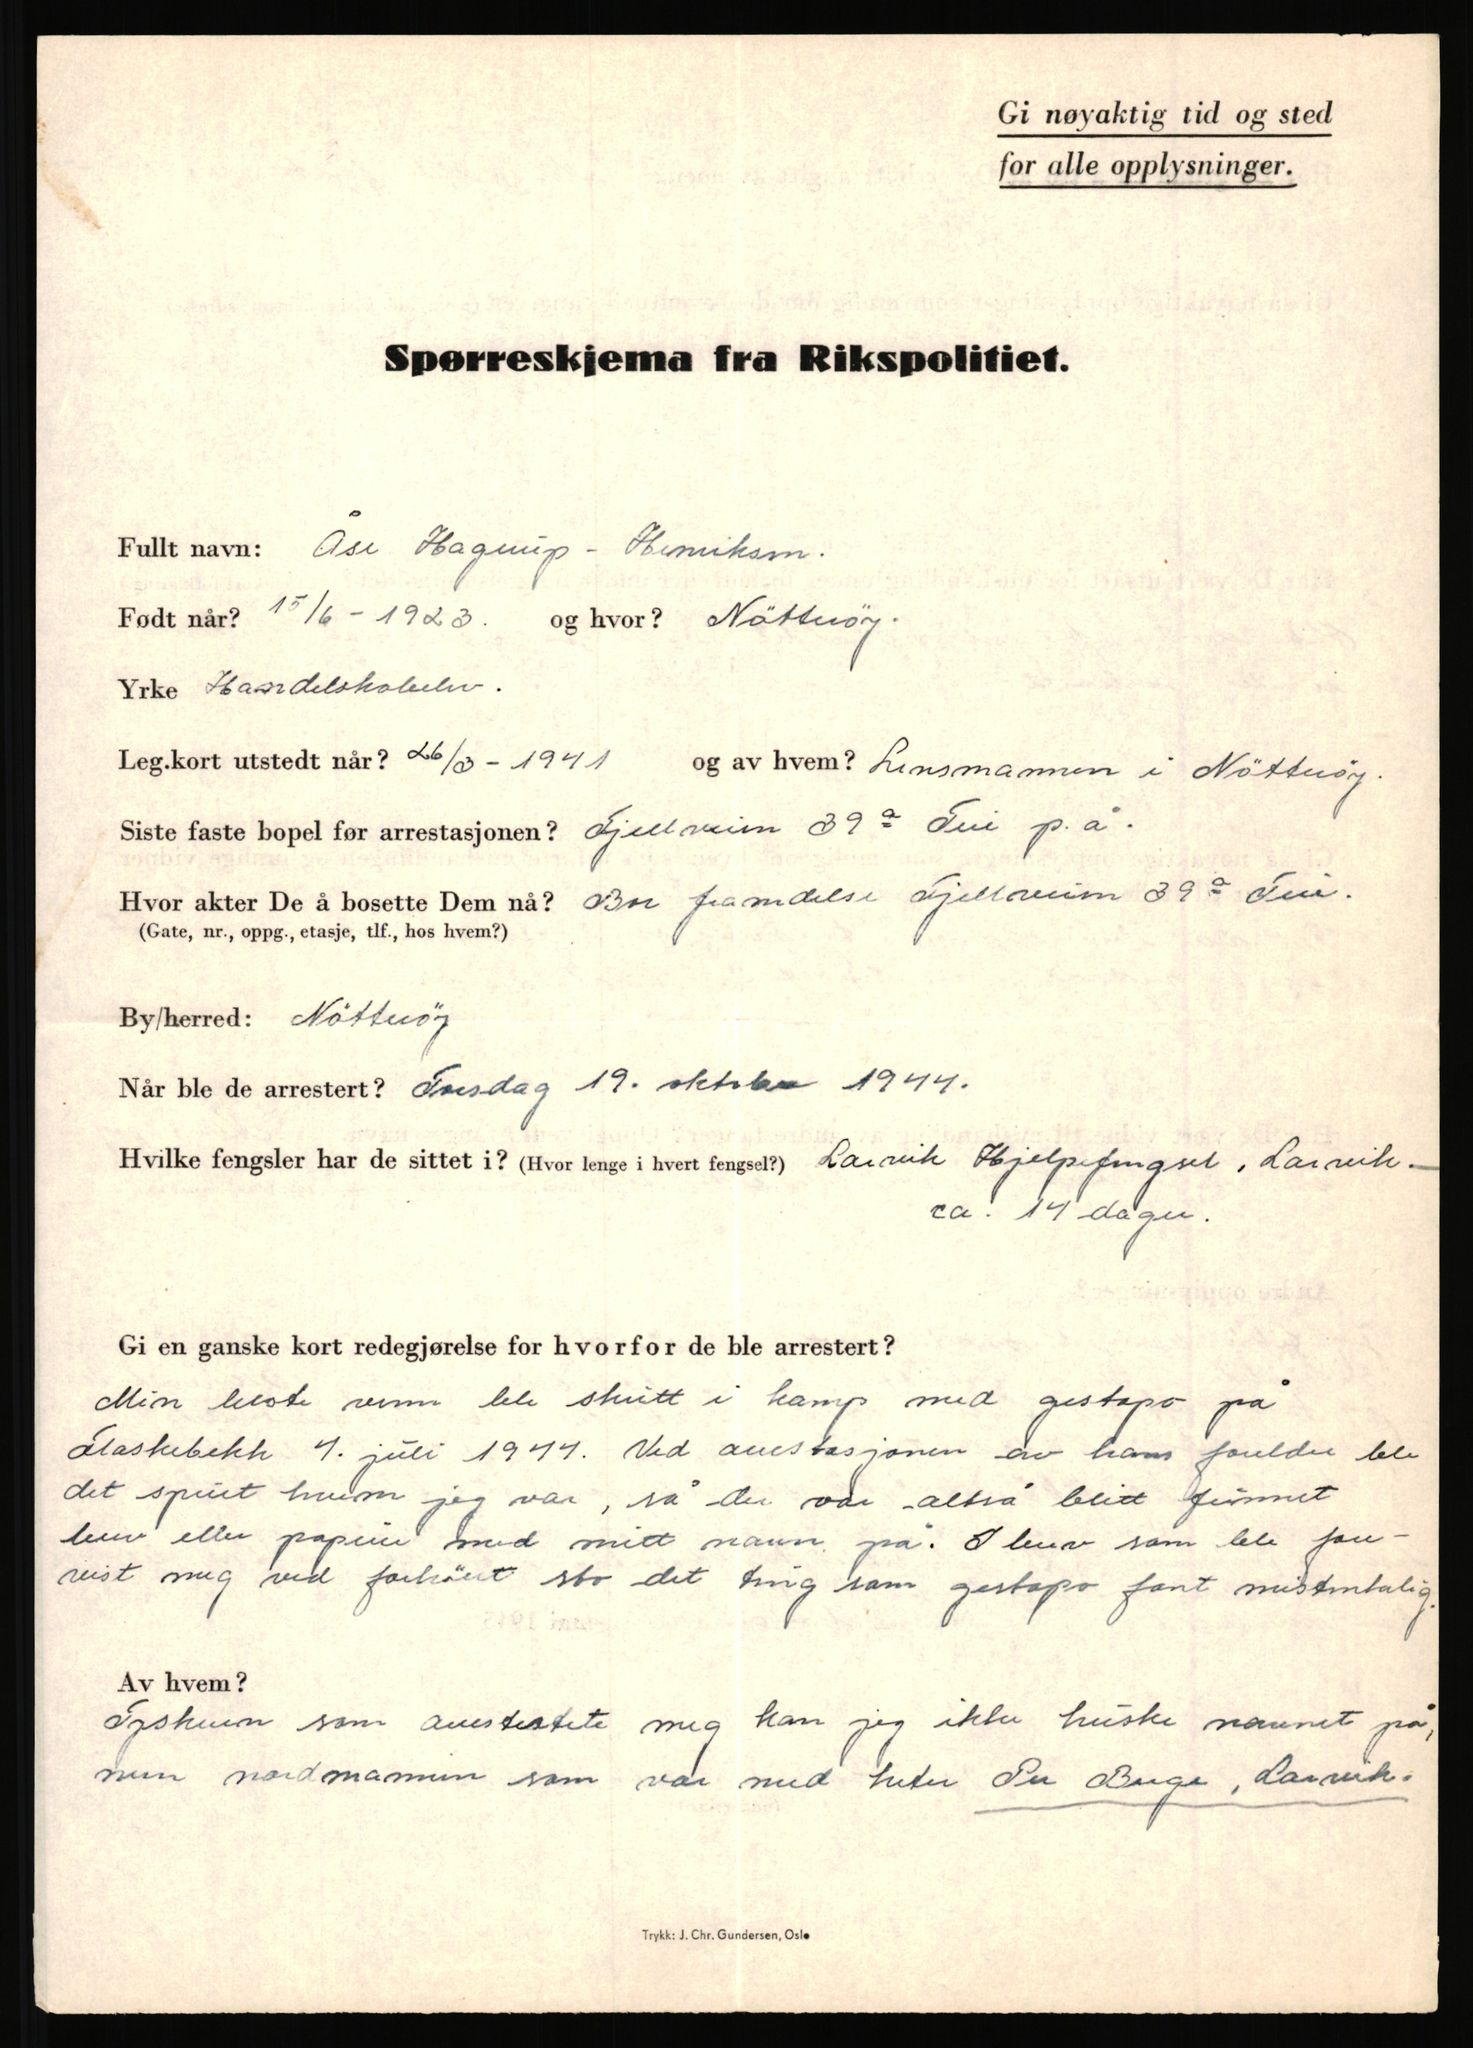 Gi nøyaktig tid og sted
for alle opplysninger.
Spørreskjema fra Rikspolitiet.
Fullt navn: Åse Hagerup - Henriksen.
Født når? 15/6 - 1923. og hvor? Nötteröy.
Yrke Handelskoleelev.
Leg.kort utstedt når? 26/3 - 1941 og av hvem? Lensmannen i Nötteröy.
Siste faste bopel før arrestasjonen? Fjellveien 39a Teie p. å.
Hvor akter De å bosette Dem nå? Bor framdeles Fjellveien 39a Teie.
(Gate, nr., oppg., etasje, tlf., hos hvem?)
By/herred: Nötteröy
Når ble de arrestert? Torsdag 19. oktober 1944.
Hvilke fengsler har de sittet i? (Hvor lenge i hvert fengsel?) Larvik Hjelpefengsel, Larvik -
ca. 14 dager.
Gi en ganske kort redegjørelse for hvorfor de ble arrestert?
Min beste venn ble skutt i kamp med gestapo på
Flaskebekk 4. juli 1944. Ved arrestasjonen av hans foreldre ble
det spurt hvem jeg var, så der var altså blitt funnet
brev eller papirer med mitt navn på. I brev som ble fore-
vist meg ved forhöret sto det ting som gestapo fant mistenkelig.
Av hvem?
Tyskeren som arresterte meg kan jeg ikke huske navnet på,
men nordmannen som var med heter Per Berge, Larvik.
Trykk: J. Chr. Gundersen, Oslo